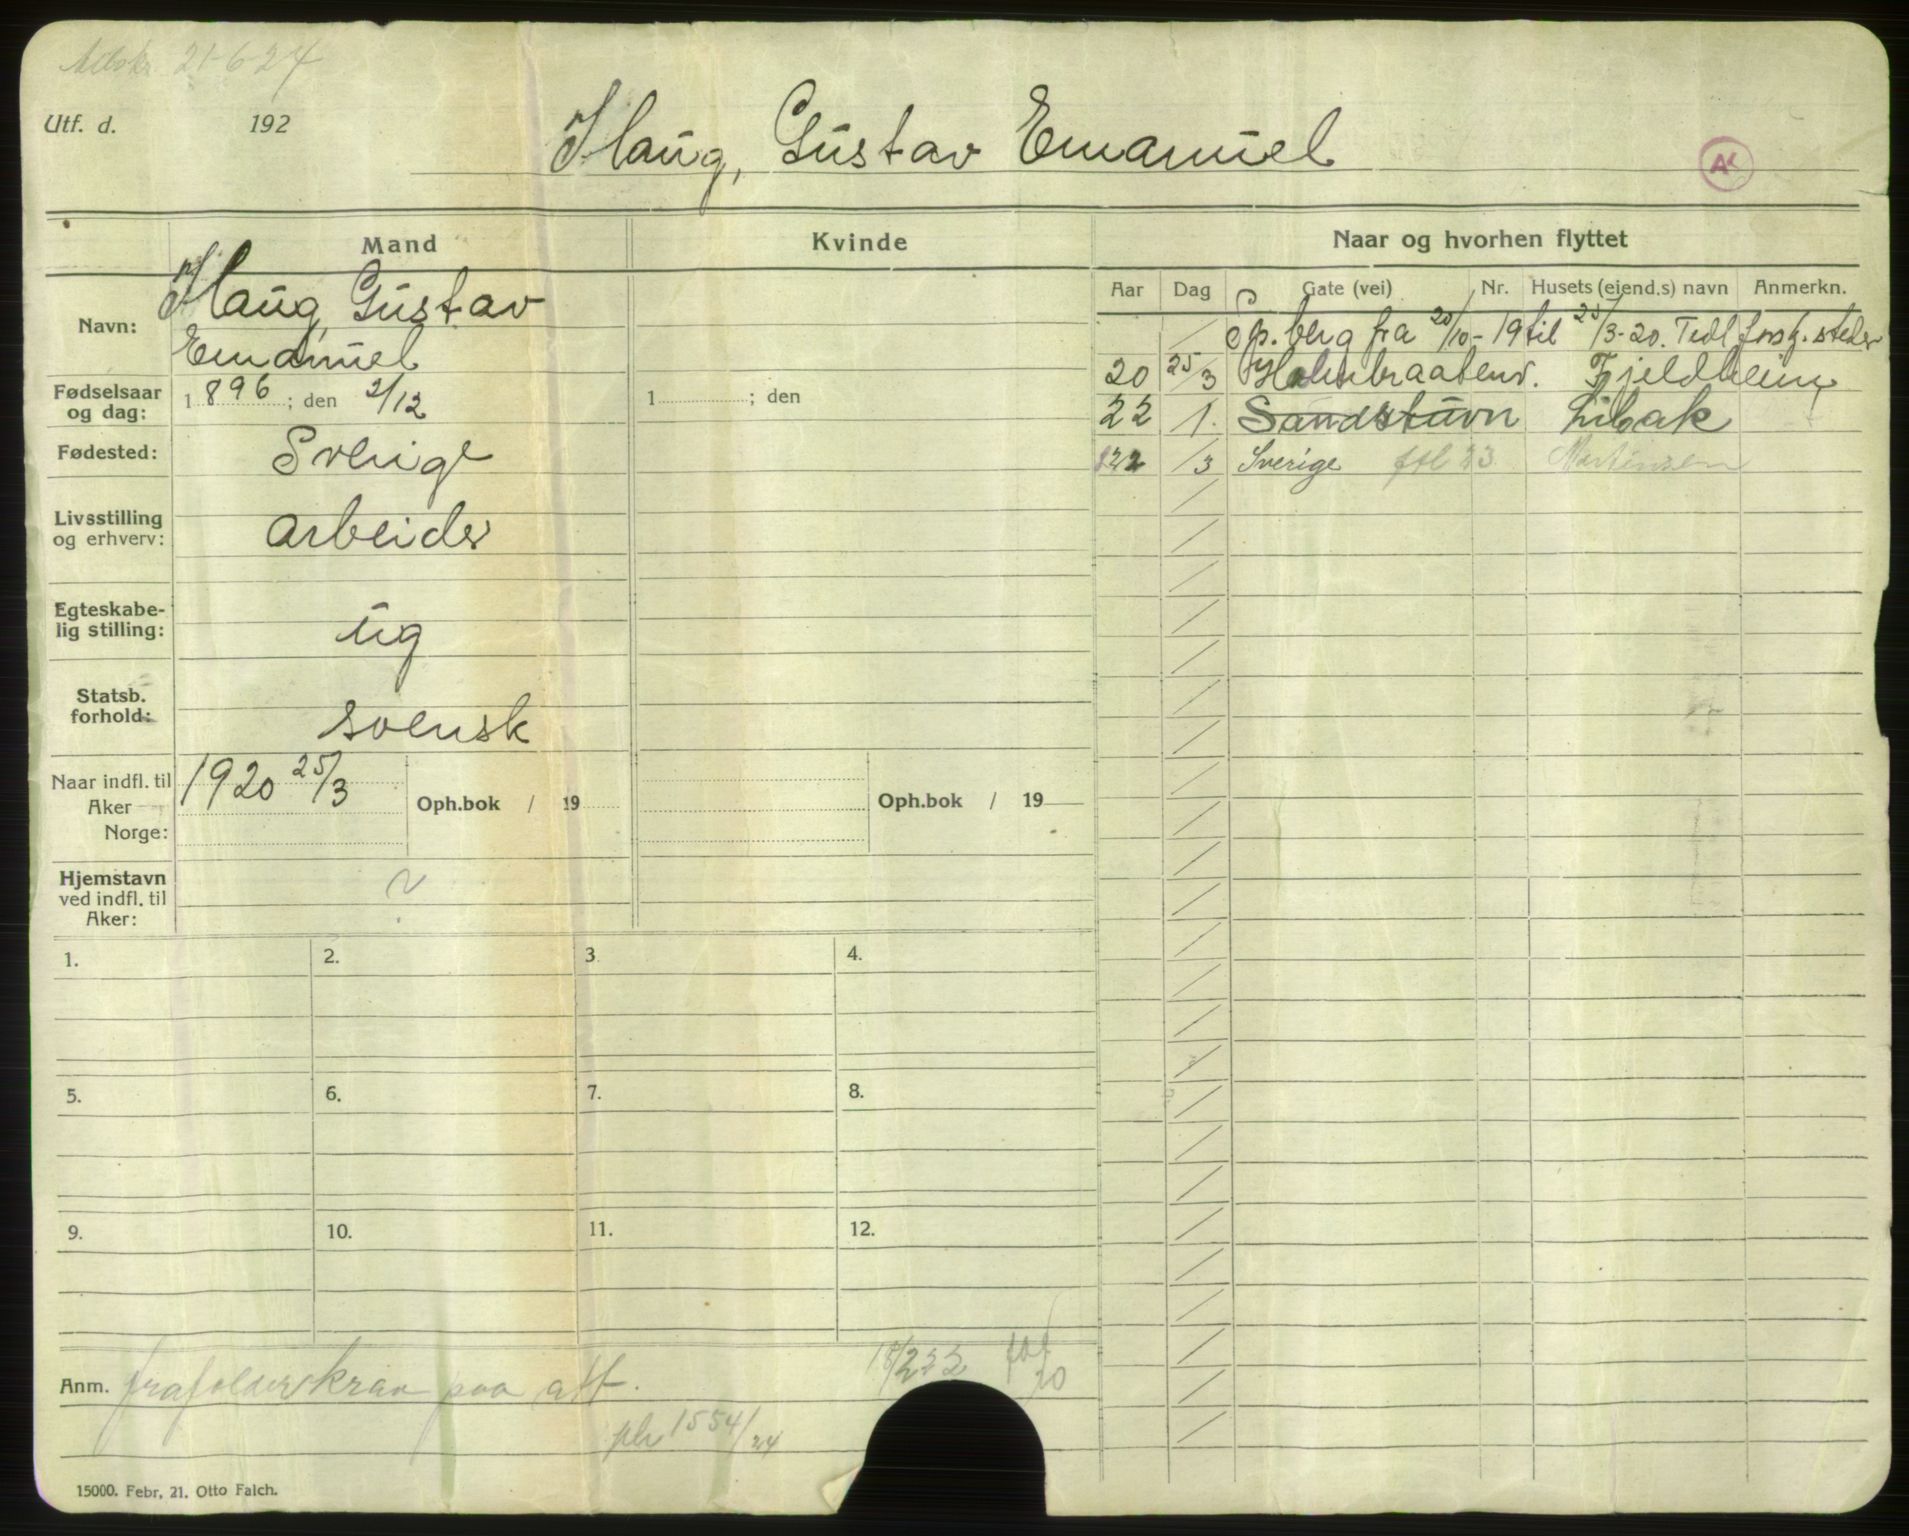 21-6-24
Utf. d. 192
Haug, Gustav Emanuel
AK
Mand
Kvinde
Naar og hvorhen flyttet
Aar Dag Gate (vei) Nr. Husets (eiend.s) navn Anmerkn.
Navn: Haug, Gustav
Emanuel
Fødselsaar
og dag: 1896; den 2/12
1 ; den
Fødested: Sverige
Livsstilling
og erhverv: arbeider
Egteskabe-
lig stilling: ug
Statsb.
forhold: svensk
Naar indfl. til
Aker
Norge: 1920 25/3
Oph.bok / 19
Oph.bok / 19
Hjemstavn
ved indfl. til
Aker: ?
Sp.berg fra 20/10-19 til 25/3-20. Tidl. steder
20 25/3 Holmbraatenv. Fjeldheim
22 1. Sandstuvn Libak
22 /3 Sverige ftl 23 Martinsen
1. 2. 3. 4.
5. 6. 7. 8.
9. 10. 11. 12.
Anm. paa att. 15/2 22
1554/24
15000. Febr, 21. Otto Falch.